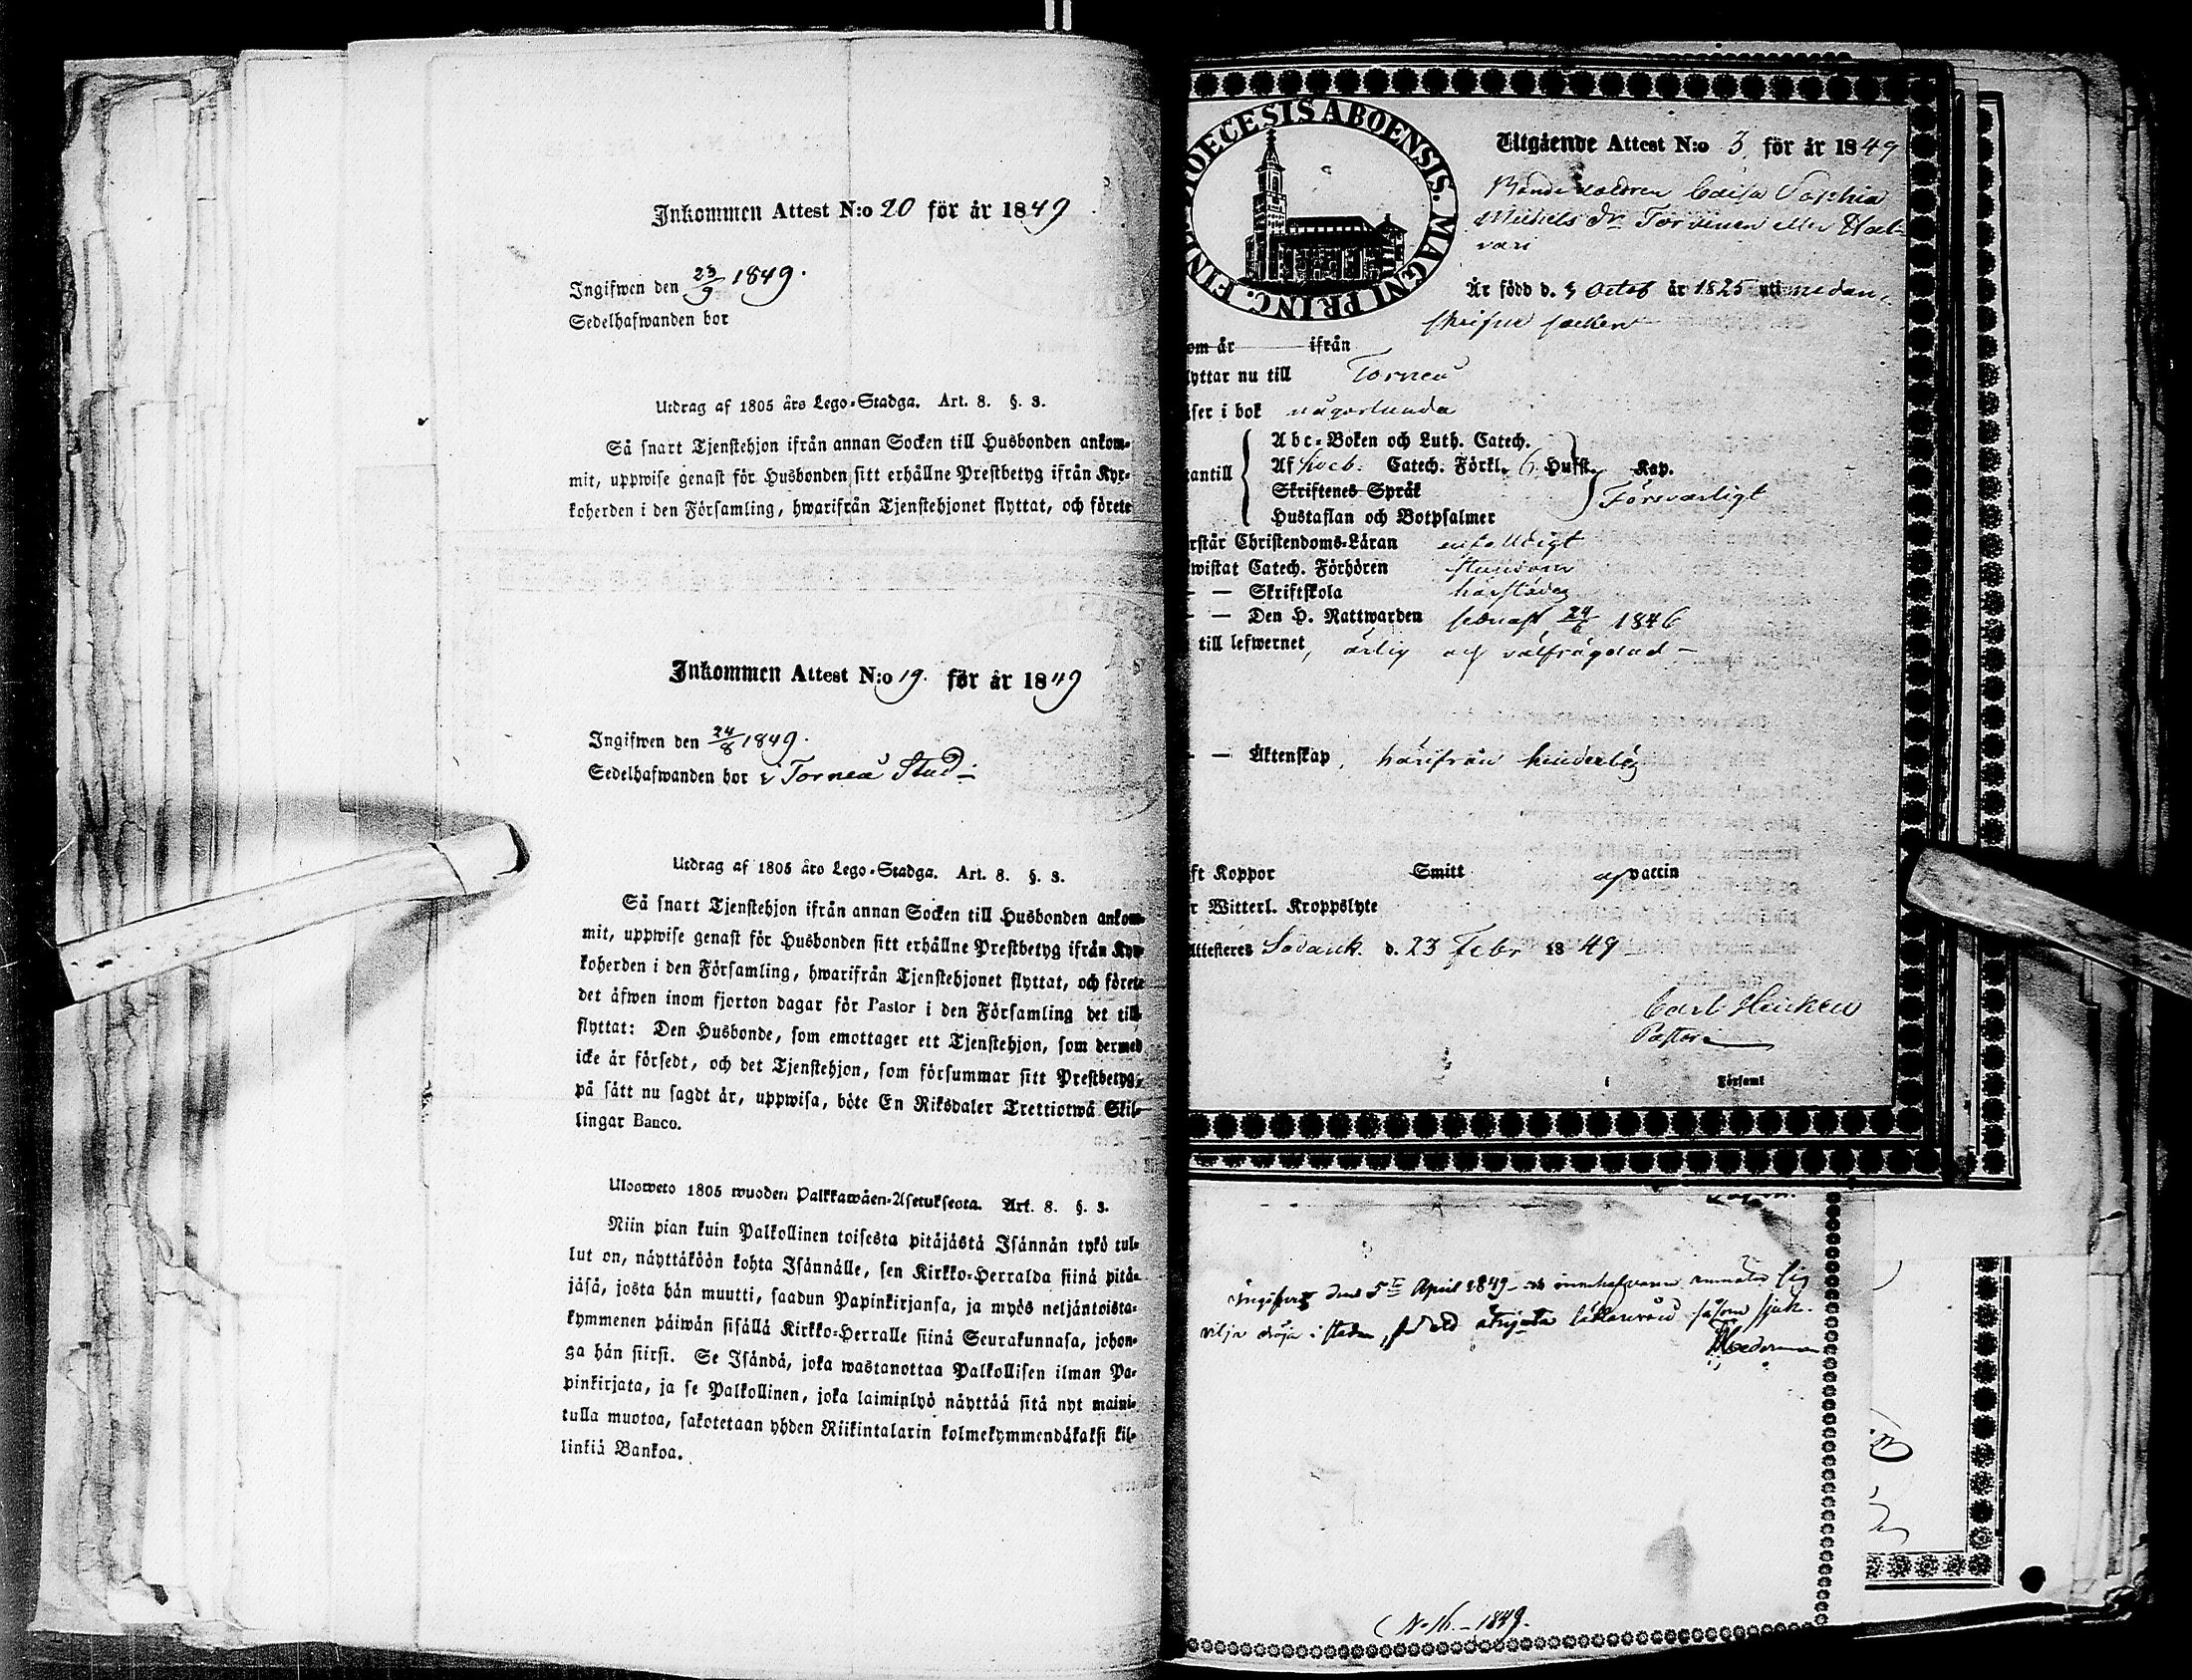 Inkommen Attest N:o 20 för år 1849
Ingifwen den 23/9 1849.
Sedelhafwanden bor
Utdrag af 1805 års Lego-Stadga. Art. 8. §. 3.
Så snart Tjenstehjon ifrån annan Socken till Husbonden ankom-
mit, uppwise genast för Husbonden sitt erhållne Prestbetyg ifrån Kyr-
koherden i den Församling, hwarifrån Tjenstehjonet flyttat, och förete
Inkommen Attest N:o 19. för år 1849
Ingifwen den 24/8 1849.
Sedelhafwanden bor i Torneå Stad
Utdrag af 1805 års Lego-Stadga. Art. 8. §. 3.
Så snart Tjenstehjon ifrån annan Socken till Husbonden ankom-
mit, uppwise genast för Husbonden sitt erhållne Prestbetyg ifrån Kyr-
koherden i den Församling, hwarifrån Tjenstehjonet flyttat, och förete
det äfwen inom fjorton dagar för Pastor i den Församling det till-
flyttat: Den Husbonde, som emottager ett Tjenstehjon, som dermed
icke är försedt, och det Tjenstehjon, som försummar sitt Prestbetyg,
på sätt nu sagdt är, uppwisa, böte En Riksdaler Trettiotwå Skil-
lingar Banco.
Ulosweto 1805 wuoden Palkkawäen-Asetuksesta. Art. 8. §. 3.
Niin pian kuin Palkollinen toisesta pitäjästä Isännän tykö tul-
lut on, näyttäköön kohta Isännälle, sen Kirkko-Herralda siinä pitä-
jäsä, josta hän muutti, saadun Papinkirjansa, ja myös neljäntoista-
kymmenen päiwän sisällä Kirkko-Herralle siinä Seurakunnasa, johon-
ga hän siirsi. Se Isändä, joka wastanottaa Palkollisen ilman Pa-
pinkirjata, ja se Palkollinen, joka laiminlyö näyttää sitä nyt maini-
tulla muotoa, sakotetaan yhden Riikintalarin kolmekymmendäkaksi kil-
linkiä Bankoa.
DIOECESIS ABOENSIS. MAGNI PRINC. FINL.
Utgående Attest N:o 3. för år 1849
Bonde Caisa Sophia
Michels dr Torvinen eller Hal-
vari
Är född d. 3 Octob år 1825 uti nedan-
skrifne socken
om år ifrån
lyttar nu till Torneå
ser i bok någorlunda
antill
Abc-Boken och Luth. Catech.
Af Catech. Förkl. 6. Hufst. Kap.
Skriftenes Språk
Hustaflan och Botpsalmer
Försvarligt
rstår Christendoms-Läran enfaldigt
wistat Catech. Förhören stundom
— Skriftskola härstädes
— Den H. Nattwarden senast 24/6 1846
till lefwernet, ärlig och välfrägdad
— Äktenskap, härifrån hinderlös
ft Koppor Smitt af vaccin
r Witterl. Kroppslyte
Attesteres Sodank. d. 23 Febr 1849
Carl Heickell
Pastor
i Församl
Ingifvet den 5te April 1849
vilja dröja i staden, såsom sjuk.
N:o 16. - 1849.